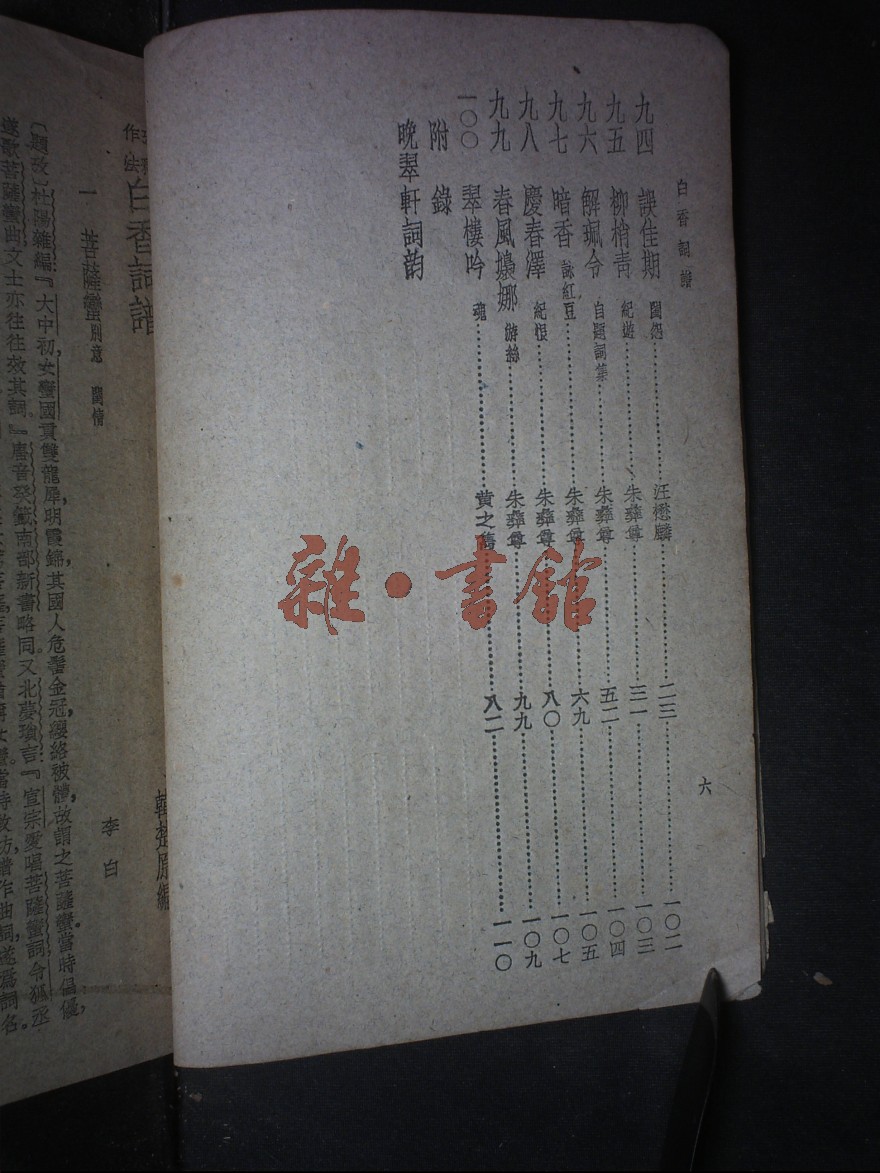 白香詞譜
六
九四 誤佳期 閨怨 汪懋麟 二三 一〇二
九五 柳梢青 紀遊 朱彝尊 三一 一〇三
九六 解珮令 自題詞集 朱彝尊 五二 一〇四
九七 暗香 詠紅豆 朱彝尊 六九 一〇五
九八 慶春澤 紀恨 朱彝尊 八〇 一〇七
九九 春風嬝娜 游絲 朱彝尊 九九 一〇九
一〇〇 翠樓吟 魂 黄之雋 八二 一一〇
附錄
晚翠軒詞韵
雜·書館
作法 白香詞譜
韓楚原編
一 菩薩蠻 別意 閨情
李白
〔題攷〕杜陽雜編『大中初,女蠻國貢雙龍犀明霞錦,其國人危髻金冠,瓔絡被體,故謂之菩薩蠻。當時倡優,
遂歌菩薩蠻曲,文士亦往往效其詞。』唐音癸籤,南部新書略同。又北夢瑣言『宣宗愛唱菩薩蠻詞,令狐丞